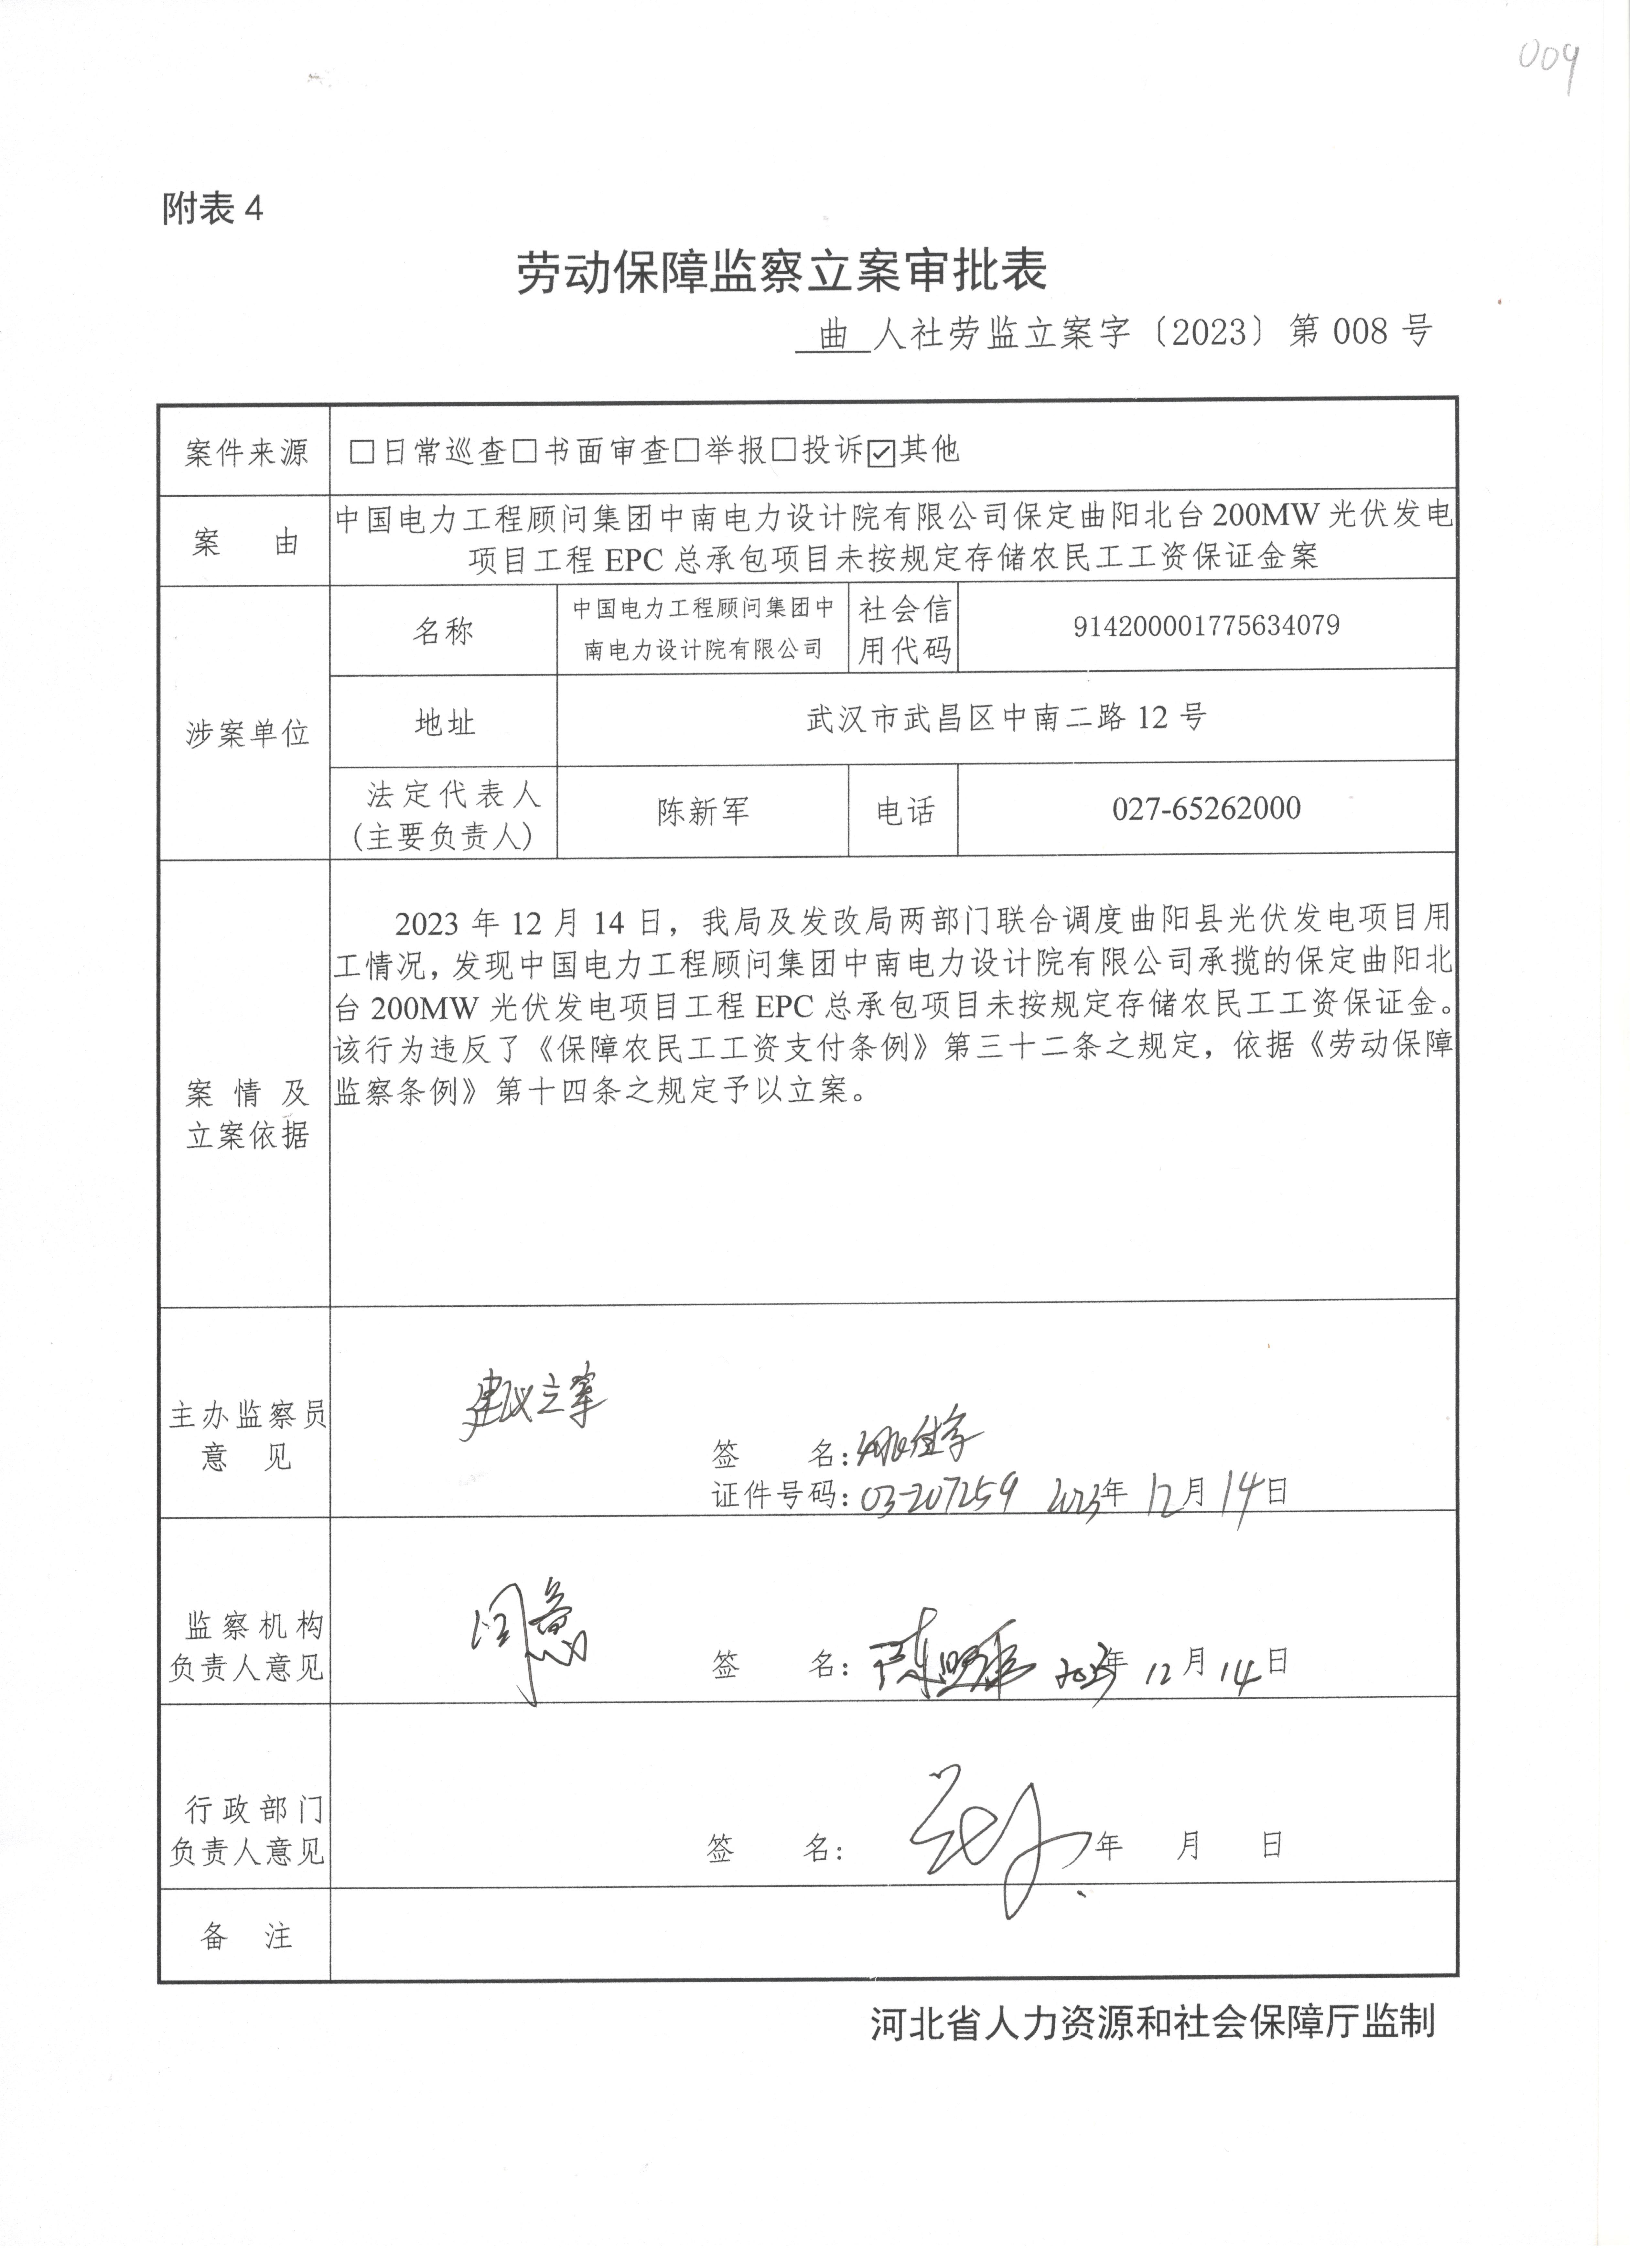 009
附表 4
劳动保障监察立案审批表
曲 人社劳监立案字〔2023〕第 008 号
案件来源 □日常巡查□书面审查□举报□投诉☑其他
案 由 中国电力工程顾问集团中南电力设计院有限公司保定曲阳北台 200MW 光伏发电
项目工程 EPC 总承包项目未按规定存储农民工工资保证金案
涉案单位
名称
中国电力工程顾问集团中
南电力设计院有限公司
社会信
用代码
914200001775634079
地址 武汉市武昌区中南二路 12 号
法定代表人
(主要负责人)
陈新军 电话 027-65262000
案 情 及
立案依据
2023 年 12 月 14 日，我局及发改局两部门联合调度曲阳县光伏发电项目用
工情况，发现中国电力工程顾问集团中南电力设计院有限公司承揽的保定曲阳北
台 200MW 光伏发电项目工程 EPC 总承包项目未按规定存储农民工工资保证金。
该行为违反了《保障农民工工资支付条例》第三十二条之规定，依据《劳动保障
监察条例》第十四条之规定予以立案。
主办监察员
意 见
建议立案
签 名：
证件号码：03-207259 2023年 12月 14日
监察机构
负责人意见
同意
签 名： 2023年 12月 14日
行政部门
负责人意见
签 名： 年 月 日
备 注
河北省人力资源和社会保障厅监制